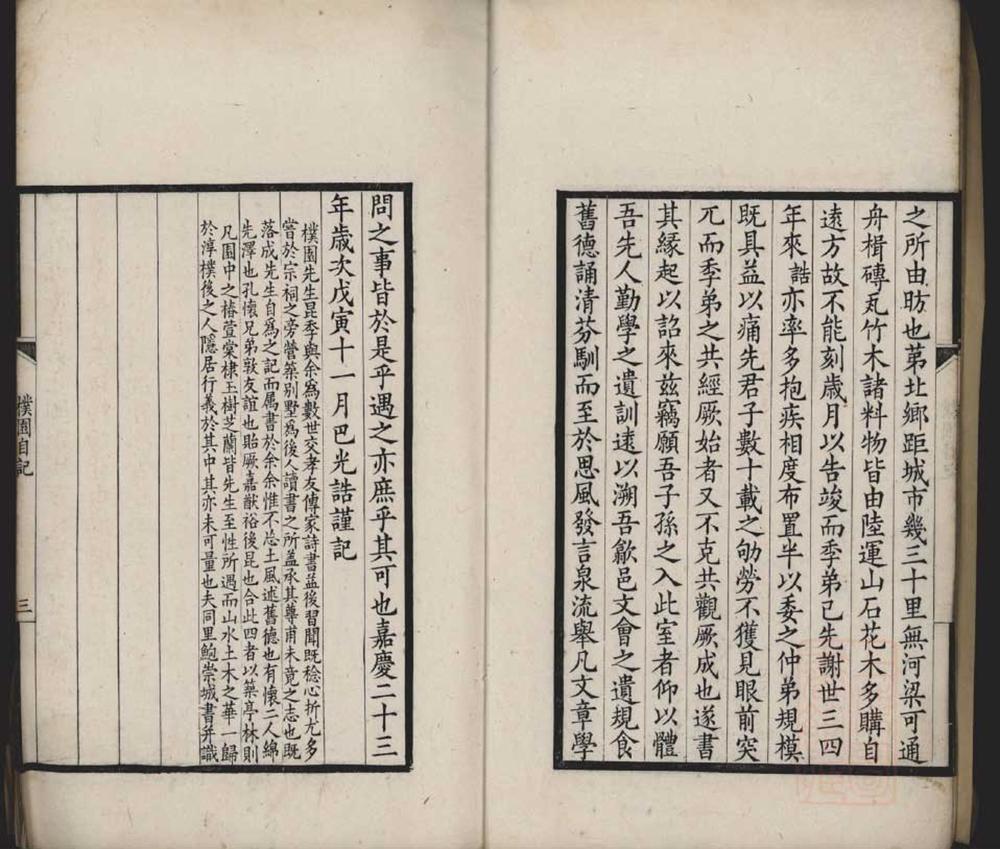 之所由昉也苐北鄉距城市幾三十里無河梁可通
舟楫磚瓦竹木諸料物皆由陸運山石花木多購自
遠方故不能刻歲月以告竣而季弟已先謝世三四
年來誥亦率多抱疾相度布置半以委之仲弟規模
既具益以痛先君子數十載之劬勞不獲見眼前突
兀而季弟之共經厥始者又不克共觀厥成也遂書
其緣起以詔來茲竊願吾子孫之入此室者仰以體
吾先人勤學之遺訓遠以溯吾歙邑文會之遺規食
舊德誦清芬馴而至於思風發言泉流舉凡文章學
問之事皆於是乎遇之亦庶乎其可也嘉慶二十三
年歲次戊寅十一月巴光誥謹記
樸園先生昆季與余為數世交孝友傳家詩書益後習聞既稔心折尤多
嘗於宗祠之旁營築別墅為後人讀書之所盖承其尊甫未竟之志也既
落成先生自為之記而属書於余余惟不忘土風述舊德也有懷二人綿
先澤也孔懷兄弟敦友誼也貽厥嘉猷裕後昆也合此四者以築亭林則
凡園中之椿萱棠棣玉樹芝蘭皆先生至性所遇而山水土木之華一歸
於淳樸後之人隱居行義於其中其亦未可量也夫同里鮑崇城書并識
樸園自記
三